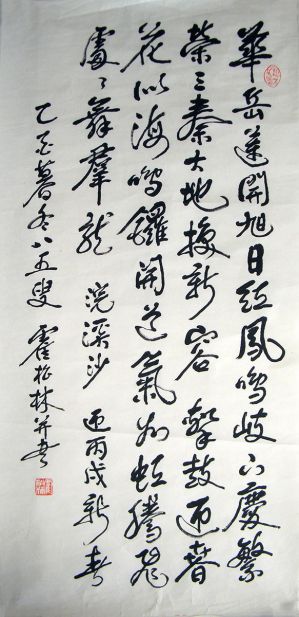 華岳蓮開旭日紅鳳鳴岐下慶繁
榮三秦大地換新容擊鼓迎春
花似海鳴鑼開道氣如虹騰飛
處々舞羣龍 浣溪沙 迎丙戌新春
乙酉暮冬八五叟 霍松林并書